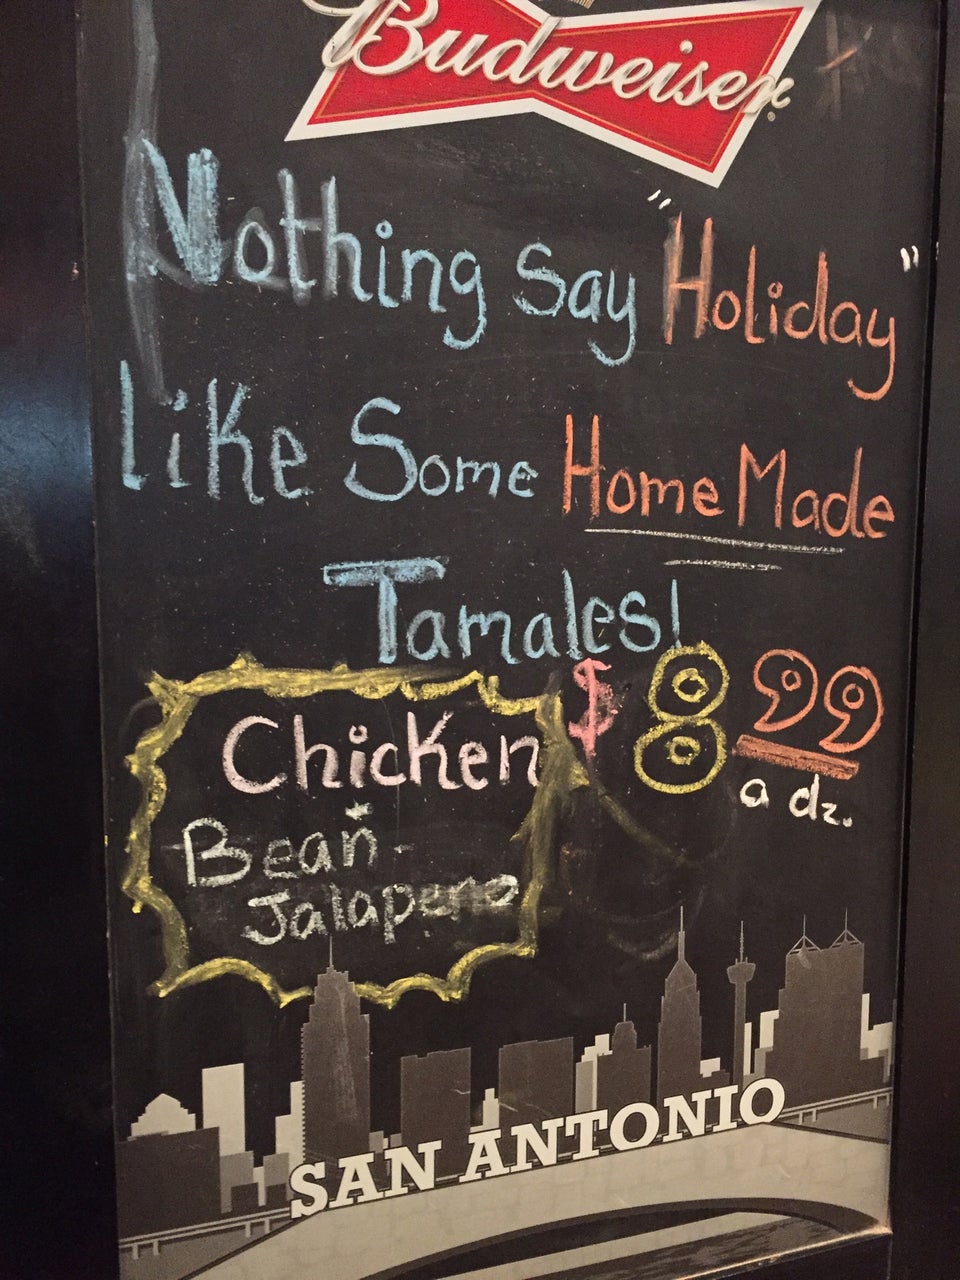 Budweiser
Nothing say "Holiday"
like Some HomeMade
Tamales!
$8.99
a dz.
Chicken
Bean -
Jalapeno
SAN ANTONIO